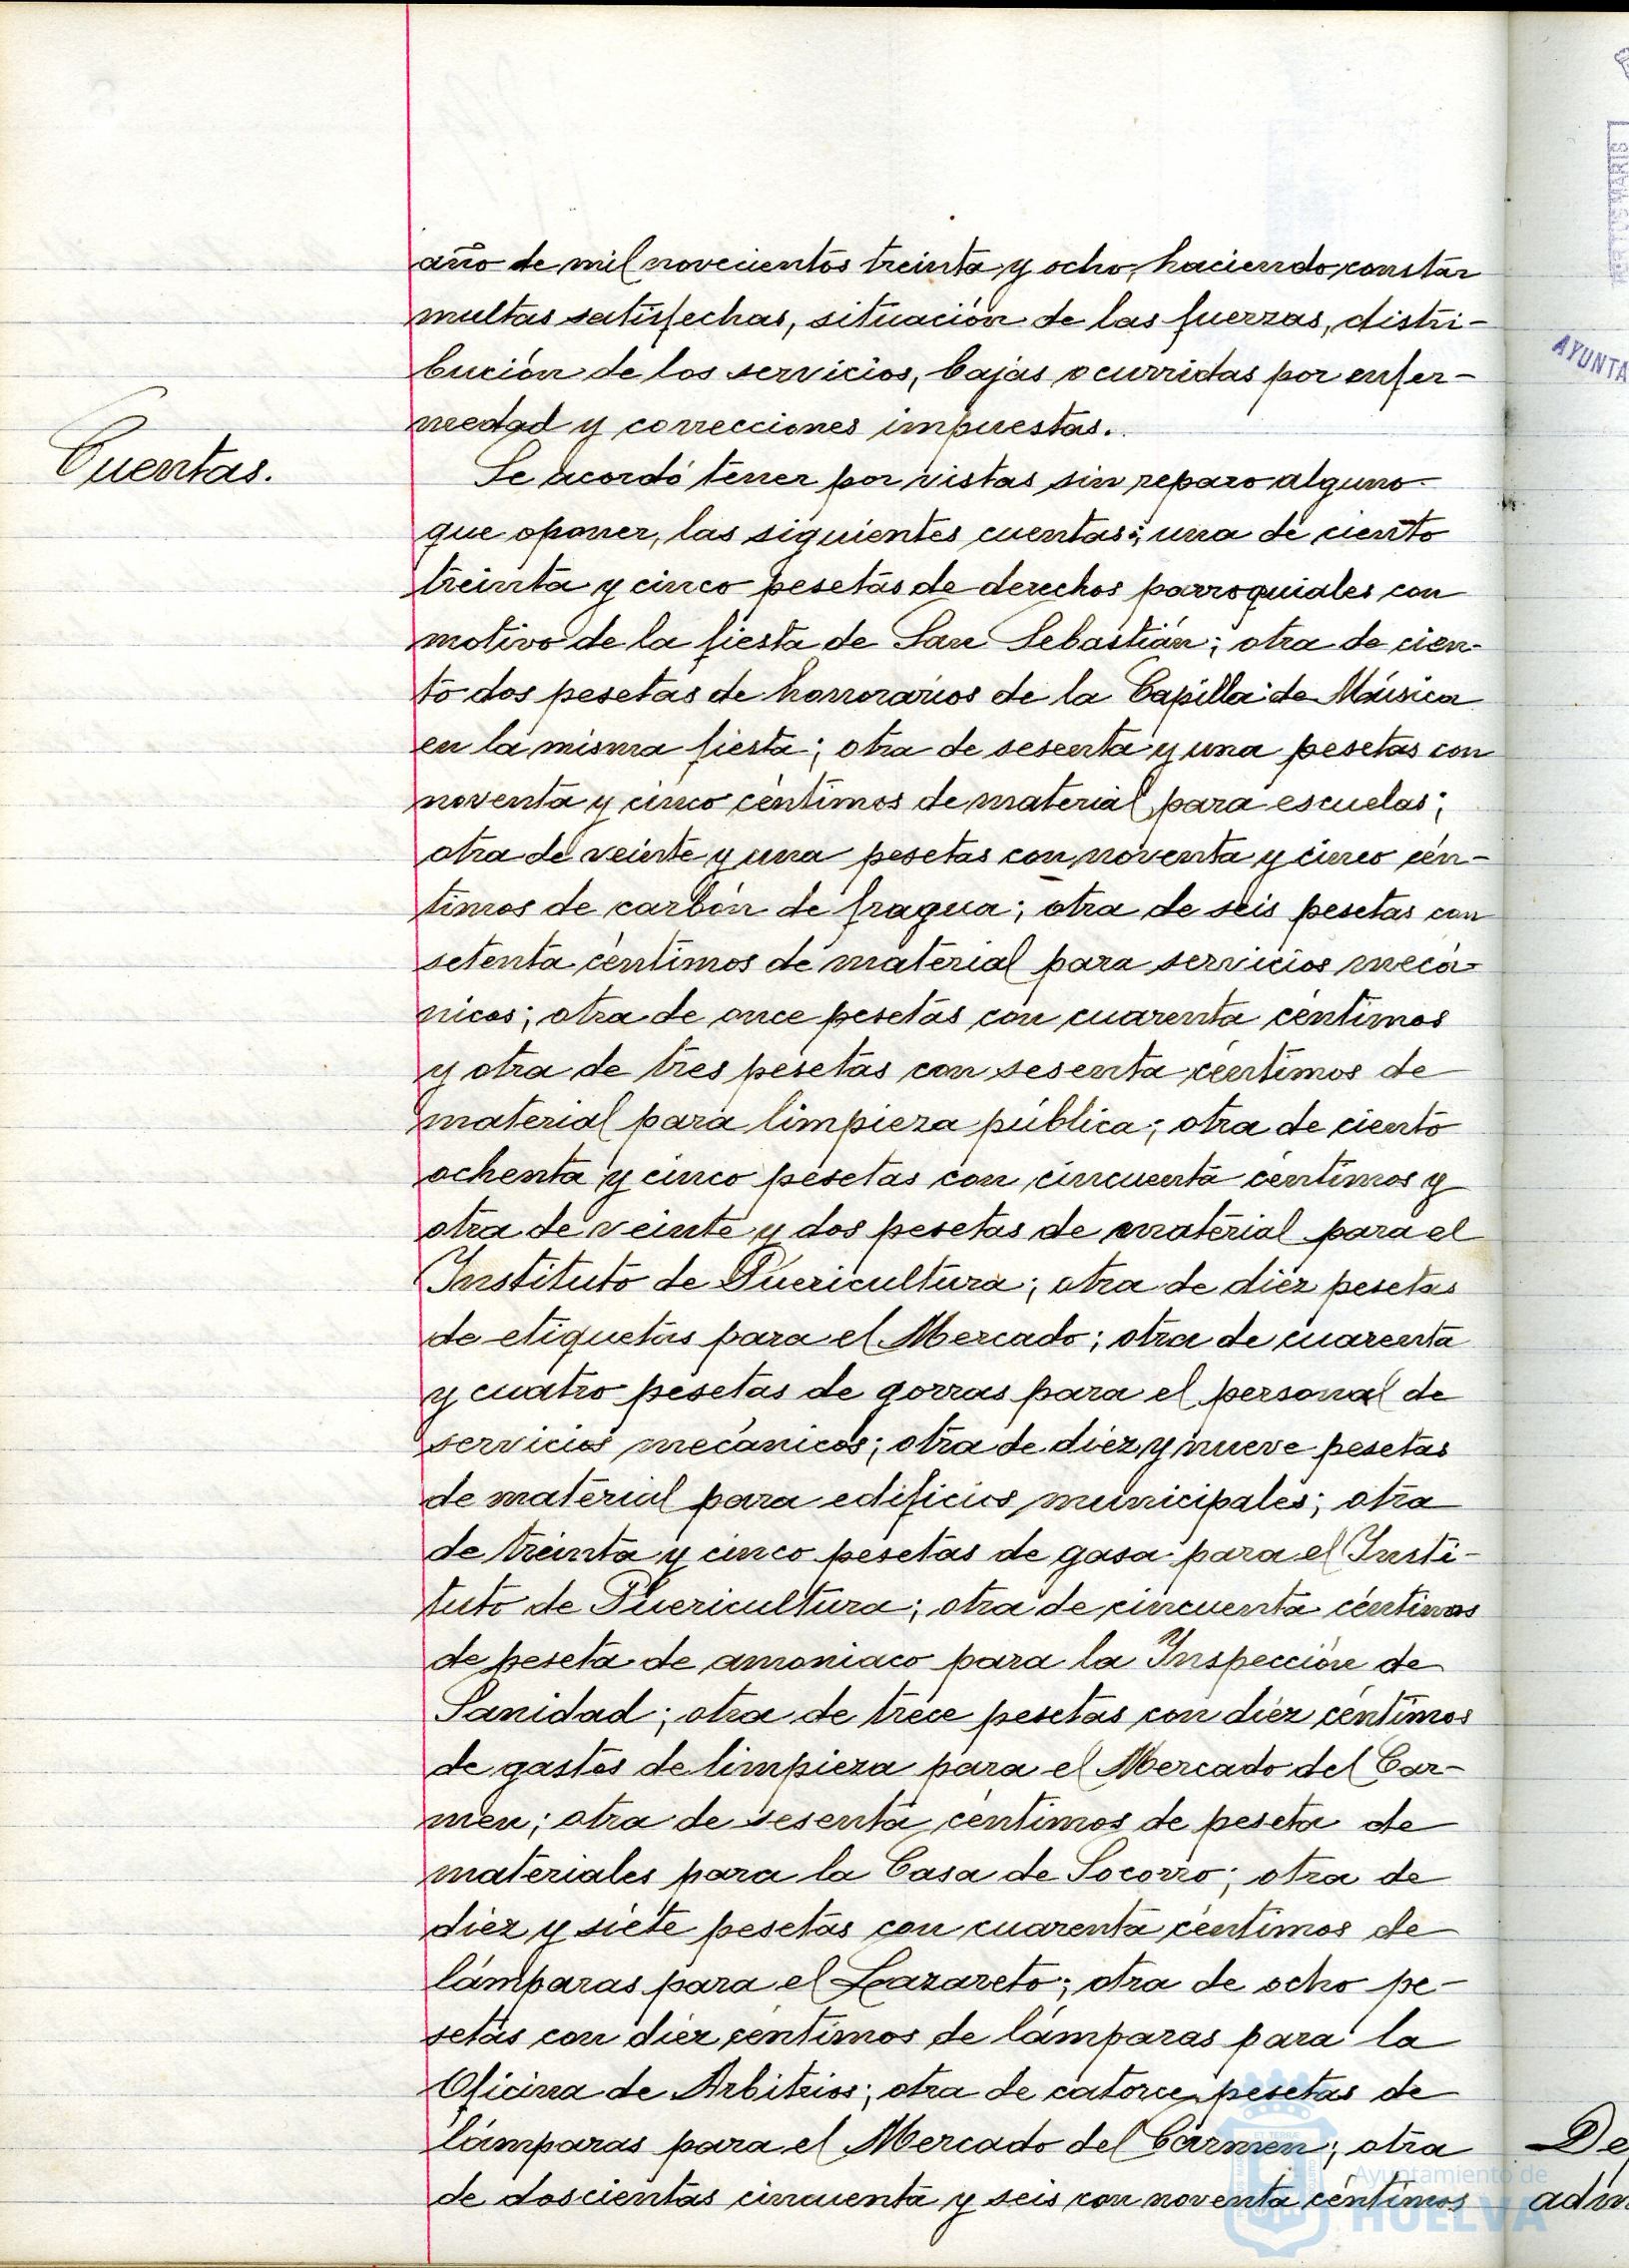 año de mil novecientos treinta y ocho, haciendo constar
multas satisfechas, situación de las fuerzas, distri-
bución de los servicios, bajas ocurridas por enfer-
medad y correcciones impuestas.
Cuentas.
Se acordó tener por vistas sin reparo alguno
que oponer, las siguientes cuentas: una de ciento
treinta y cinco pesetas de derechos parroquiales con
motivo de la fiesta de San Sebastián; otra de cien-
to dos pesetas de honorarios de la Capilla de Música
en la misma fiesta; otra de sesenta y una pesetas con
noventa y cinco céntimos de material para escuelas;
otra de veinte y una pesetas con noventa y cinco cén-
timos de carbón de fragua; otra de seis pesetas con
setenta céntimos de material para servicios mecá-
nicos; otra de once pesetas con cuarenta céntimos
y otra de tres pesetas con sesenta céntimos de
material para limpieza pública; otra de ciento
ochenta y cinco pesetas con cincuenta centimos y
otra de veinte y dos pesetas de material para el
Instituto de Puericultura; otra de diez pesetas
de etiquetas para el Mercado; otra de cuarenta
y cuatro pesetas de gorras para el personal de
servicios mecánicos; otra de diez y nueve pesetas
de material para edificios municipales; otra
de treinta y cinco pesetas de gasa para el Insti-
tuto de Puericultura; otra de cincuenta céntimos
de peseta de amoniaco para la Inspección de
Sanidad; otra de trece pesetas con diez céntimos
de gastos de limpieza para el Mercado del Car-
men; otra de sesenta céntimos de peseta de
materiales para la Casa de Socorro; otra de
diez y siete pesetas con cuarenta céntimos de
lámparas para el Lazareto; otra de ocho pe-
setas con diez céntimos de lámparas para la
Oficina de Arbitrios; otra de catorce pesetas de
lámparas para el Mercado del Carmen; otra
de doscientas cincuenta y seis con noventa céntimos
AYUNTA
De
adm
Ayuntamiento de
HUELVA